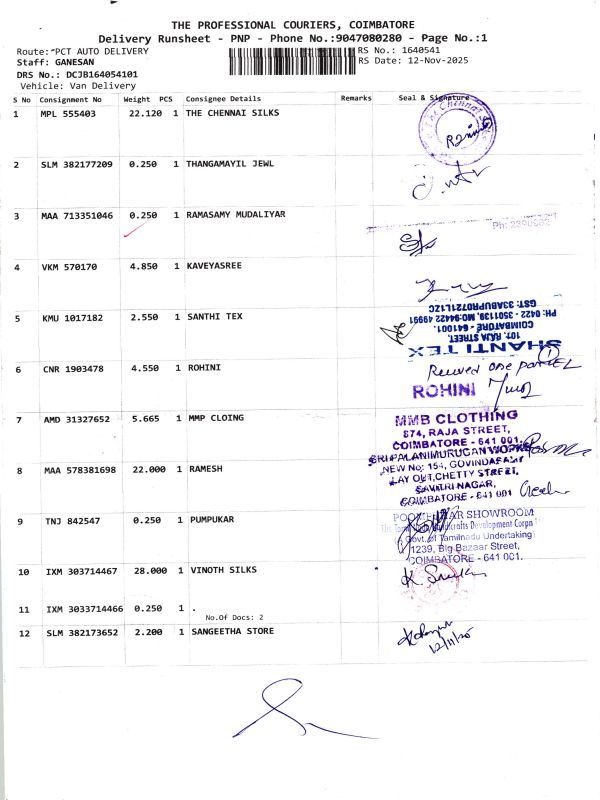 THE PROFESSIONAL COURIERS, COIMBATORE
Delivery Runsheet - PNP - Phone No.:9047080280 - Page No.:1
Route: PCT AUTO DELIVERY RS No.: 1640541
Staff: GANESAN RS Date: 12-Nov-2025
DRS No.: DCJB164054101
Vehicle: Van Delivery
S No Consignment No Weight PCS Consignee Details Remarks Seal & Signature
1 MPL 555403 22.120 1 THE CHENNAI SILKS
The Chennai
2 SLM 382177209 0.250 1 THANGAMAYIL JEWL
3 MAA 713351046 0.250 1 RAMASAMY MUDALIYAR
4 VKM 570170 4.850 1 KAVEYASREE
5 KMU 1017182 2.550 1 SANTHI TEX
SHANTI TEX
107, RAJA STREET,
COIMBATORE - 641001.
PH: 0422 - 3501139, MO:94422 49991
GST: 33ABUPR0721L1ZC
1
6 CNR 1903478 4.550 1 ROHINI
Received one parcel
ROHINI
7 AMD 31327652 5.665 1 MMP CLOING
MMB CLOTHING
874, RAJA STREET,
COIMBATORE - 641 001.
8 MAA 578381698 22.000 1 RAMESH
SRI PALANIMURUGAN WORKS
NEW No: 154, GOVINDASAMY
LAY OUT,CHETTY STREET,
SAVITRI NAGAR,
COIMBATORE - 641 001
9 TNJ 842547 0.250 1 PUMPUKAR
POOMPUHAR SHOWROOM
Handicrafts Development Corpn
Govt. of Tamilnadu Undertaking)
1239, Big Bazaar Street,
COIMBATORE - 641 001.
10 IXM 303714467 28.000 1 VINOTH SILKS
11 IXM 3033714466 0.250 1 .
No.Of Docs: 2
12 SLM 382173652 2.200 1 SANGEETHA STORE
12/11/25